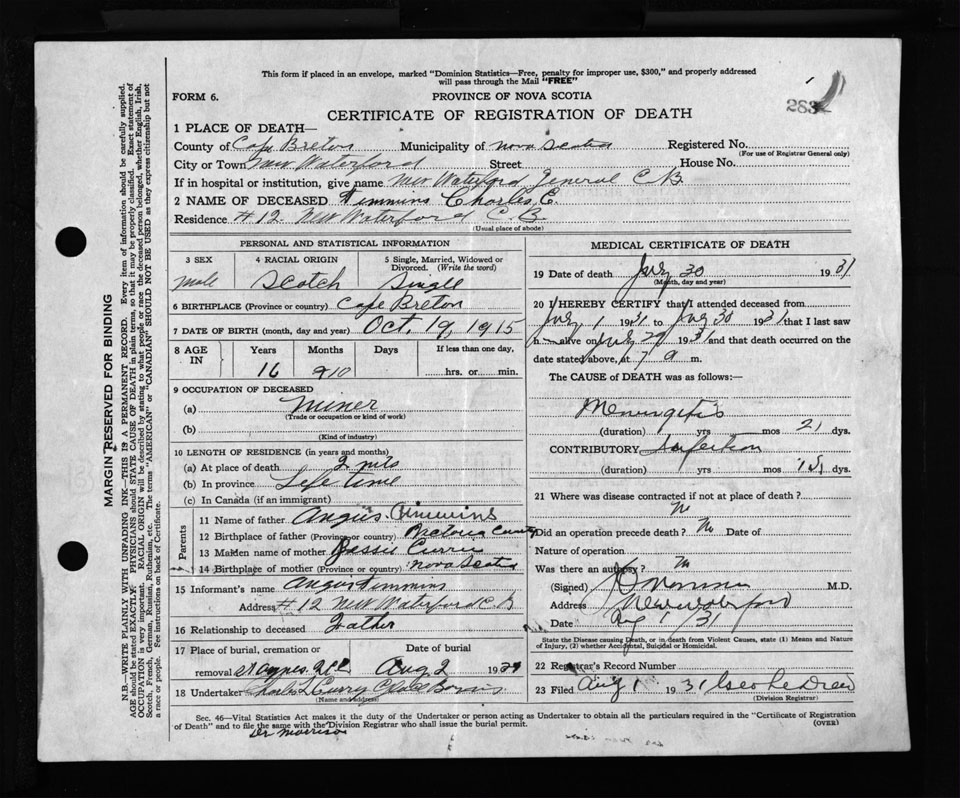 This form if placed in an envelope, marked "Dominion Statistics—Free, penalty for improper use, $300," and properly addressed
will pass through the Mail "FREE"
FORM 6.
PROVINCE OF NOVA SCOTIA
283
CERTIFICATE OF REGISTRATION OF DEATH
1 PLACE OF DEATH—
County of Cape Breton Municipality of Nova Scotia Registered No.
(For use of Registrar General only)
City or Town New Waterford Street House No.
If in hospital or institution, give name New Waterford General C B.
2 NAME OF DECEASED Timmins Charles E.
Residence #12 New Waterford C. B.
(Usual place of abode)
PERSONAL AND STATISTICAL INFORMATION
3 SEX 4 RACIAL ORIGIN 5 Single, Married, Widowed or
Divorced. (Write the word)
male Scotch Single
6 BIRTHPLACE (Province or country) Cape Breton
7 DATE OF BIRTH (month, day and year) Oct. 19, 1915
8 AGE IN Years Months Days If less than one day,
16 9 10 hrs. or min.
9 OCCUPATION OF DECEASED
(a) Miner
(Trade or occupation or kind of work)
(b)
(Kind of industry)
10 LENGTH OF RESIDENCE (in years and months)
(a) At place of death
(b) In province Life time
(c) In Canada (if an immigrant)
Parents
11 Name of father Angus Timmins
12 Birthplace of father (Province or country) Victoria County
13 Maiden name of mother Jessie Currie
14 Birthplace of mother (Province or country) Nova Scotia
15 Informant's name Angus Timmins
Address #12 New Waterford C B
16 Relationship to deceased Father
17 Place of burial, cremation or Date of burial
removal St Agnes Aug 2 19
18 Undertaker Charles L Curry
(Name and address)
MEDICAL CERTIFICATE OF DEATH
19 Date of death July 30 1931
(Month, day and year)
20 I HEREBY CERTIFY that I attended deceased from
July 1 1931 to July 30 1931 that I last saw
h alive on July 29 1931 and that death occurred on the
date stated above, at 7 a m.
The CAUSE of DEATH was as follows:
Meningitis
(duration) yrs mos 21 dys.
CONTRIBUTORY Infection
(duration) yrs mos dys.
21 Where was disease contracted if not at place of death?
No
Did an operation precede death? No Date of
Nature of operation
Was there an autopsy? No
(Signed) M.D.
Address New Waterford
Date Aug 1/31
State the Disease causing Death, or in death from Violent Causes, state (1) Means and Nature
of Injury, (2) whether Accidental, Suicidal or Homicidal.
22 Registrar's Record Number
23 Filed Aug 1 1931
(Division Registrar)
Sec. 46—Vital Statistics Act makes it the duty of the Undertaker or person acting as Undertaker to obtain all the particulars required in the "Certificate of Registration
of Death" and to file the same with the Division Registrar who shall issue the burial permit.
(OVER)
Dr Morrison
MARGIN RESERVED FOR BINDING
N.B.—WRITE PLAINLY WITH UNFADING INK—THIS IS A PERMANENT RECORD. Every item of information should be carefully supplied.
AGE should be stated EXACTLY. PHYSICIANS should STATE CAUSE OF DEATH in plain terms, so that it may be properly classified. Exact statement of
OCCUPATION is very important. RACIAL ORIGIN will be described by stating to what people or race the deceased person belonged, whether English, Irish,
Scotch, French, German, Russian, Ruthenian, etc. The terms "AMERICAN" or "CANADIAN" SHOULD NOT BE USED as they express citizenship but not
a race or people. See instructions on back of Certificate.